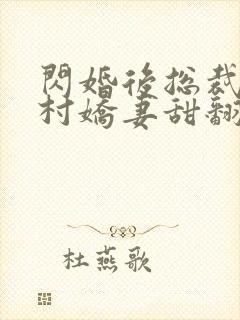 閃婚後總裁
村嬌妻甜翻
杜燕歌